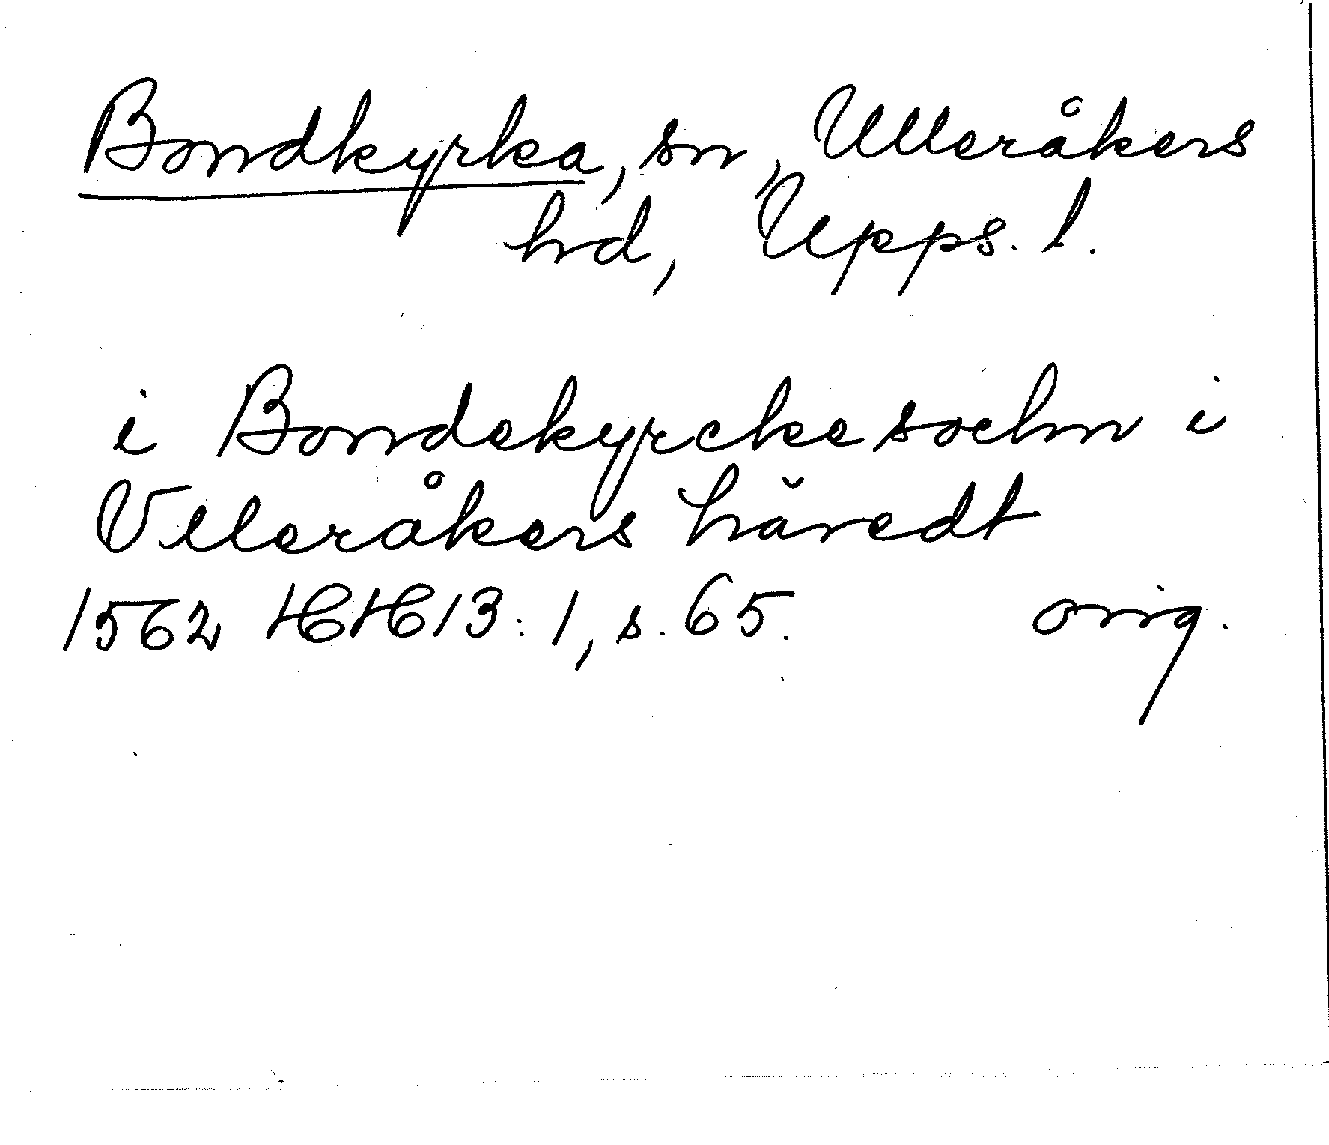 Bondkyrka, sn, Ulleråkers
hd, Upps. l.
i Bondekyrcke sochn i
Vlleråkers häredt
1562 HH 13:1, s. 65. orig.